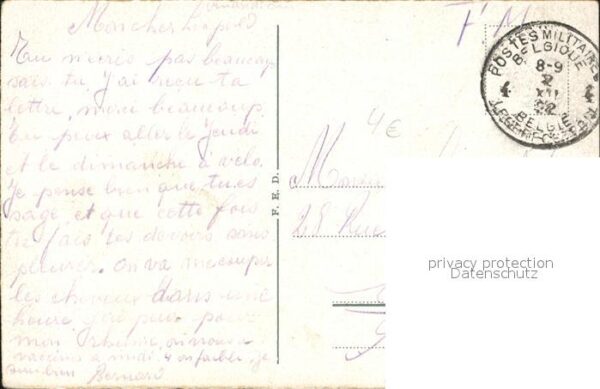 Mon cher Léopold
Tu n'écris pas beaucoup
sais tu, j'ai reçu ta
lettre, merci beaucoup
tu peux aller le jeudi
et le dimanche à vélo.
Je pense bien que tu es
sage, et que cette fois
tu fais tes devoirs sans
pleurer. On va me couper
les cheveux dans une
heure j'ai peur pour
mon on nous a
vacciné à midi. on faible, je
Bernard
F. E. D.
F M
POSTES MILITAIRES
BELGIQUE
8-9
2
XII
22
4 4
BELGIE
LEGERPOSTERIJ
4€
Mons
25 Rue
privacy protection
Datenschutz